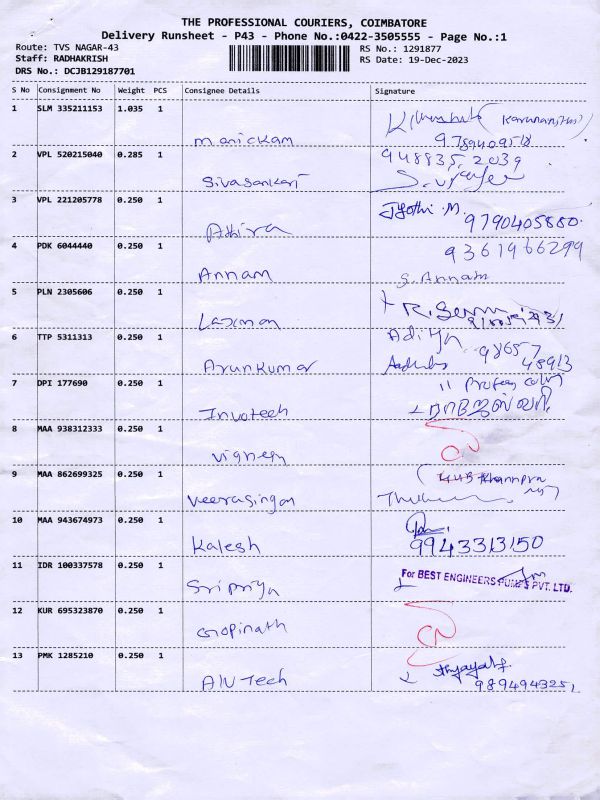 THE PROFESSIONAL COURIERS, COIMBATORE
Delivery Runsheet - P43 - Phone No.:0422-3505555 - Page No.:1
Route: TVS NAGAR-43
RS No.: 1291877
Staff: RADHAKRISH
RS Date: 19-Dec-2023
DRS No.: DCJB129187701
S No Consignment No Weight PCS Consignee Details Signature
1 SLM 335211153 1.035 1
manickam
2 VPL 520215040 0.285 1
Sivasankari
3 VPL 221205778 0.250 1 Jyothi .M
Athira 9790405880
4 PDK 6044440 0.250 1 9361966299
Annam S. Annam
5 PLN 2305606 0.250 1
Laxman
6 TTP 5311313 0.250 1 Aditya
Arunkumar 98657
48913
7 DPI 177690 0.250 1
Invotech
8 MAA 938312333 0.250 1
vignesh
9 MAA 862699325 0.250 1
Veerasingam
10 MAA 943674973 0.250 1
Kalesh 9943313150
11 IDR 100337578 0.250 1 For BEST ENGINEERS PUMPS PVT. LTD.
Sri priya
12 KUR 695323870 0.250 1
Gopinath CN
13 PMK 1285210 0.250 1
AlV Tech 9894943251